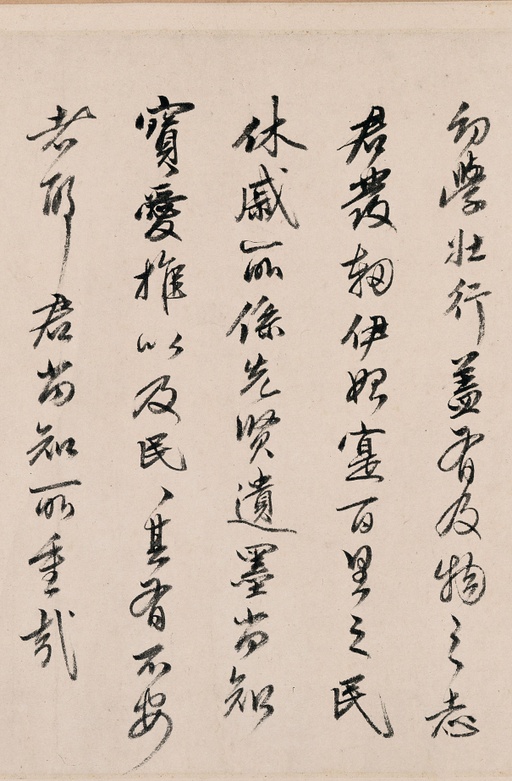 幼學壯行蓋有及物之志
君發軔伊始寔百里之民
休戚所係先賢遺墨尚知
寶愛推以及民民其有不安
者耶君尚知所重哉